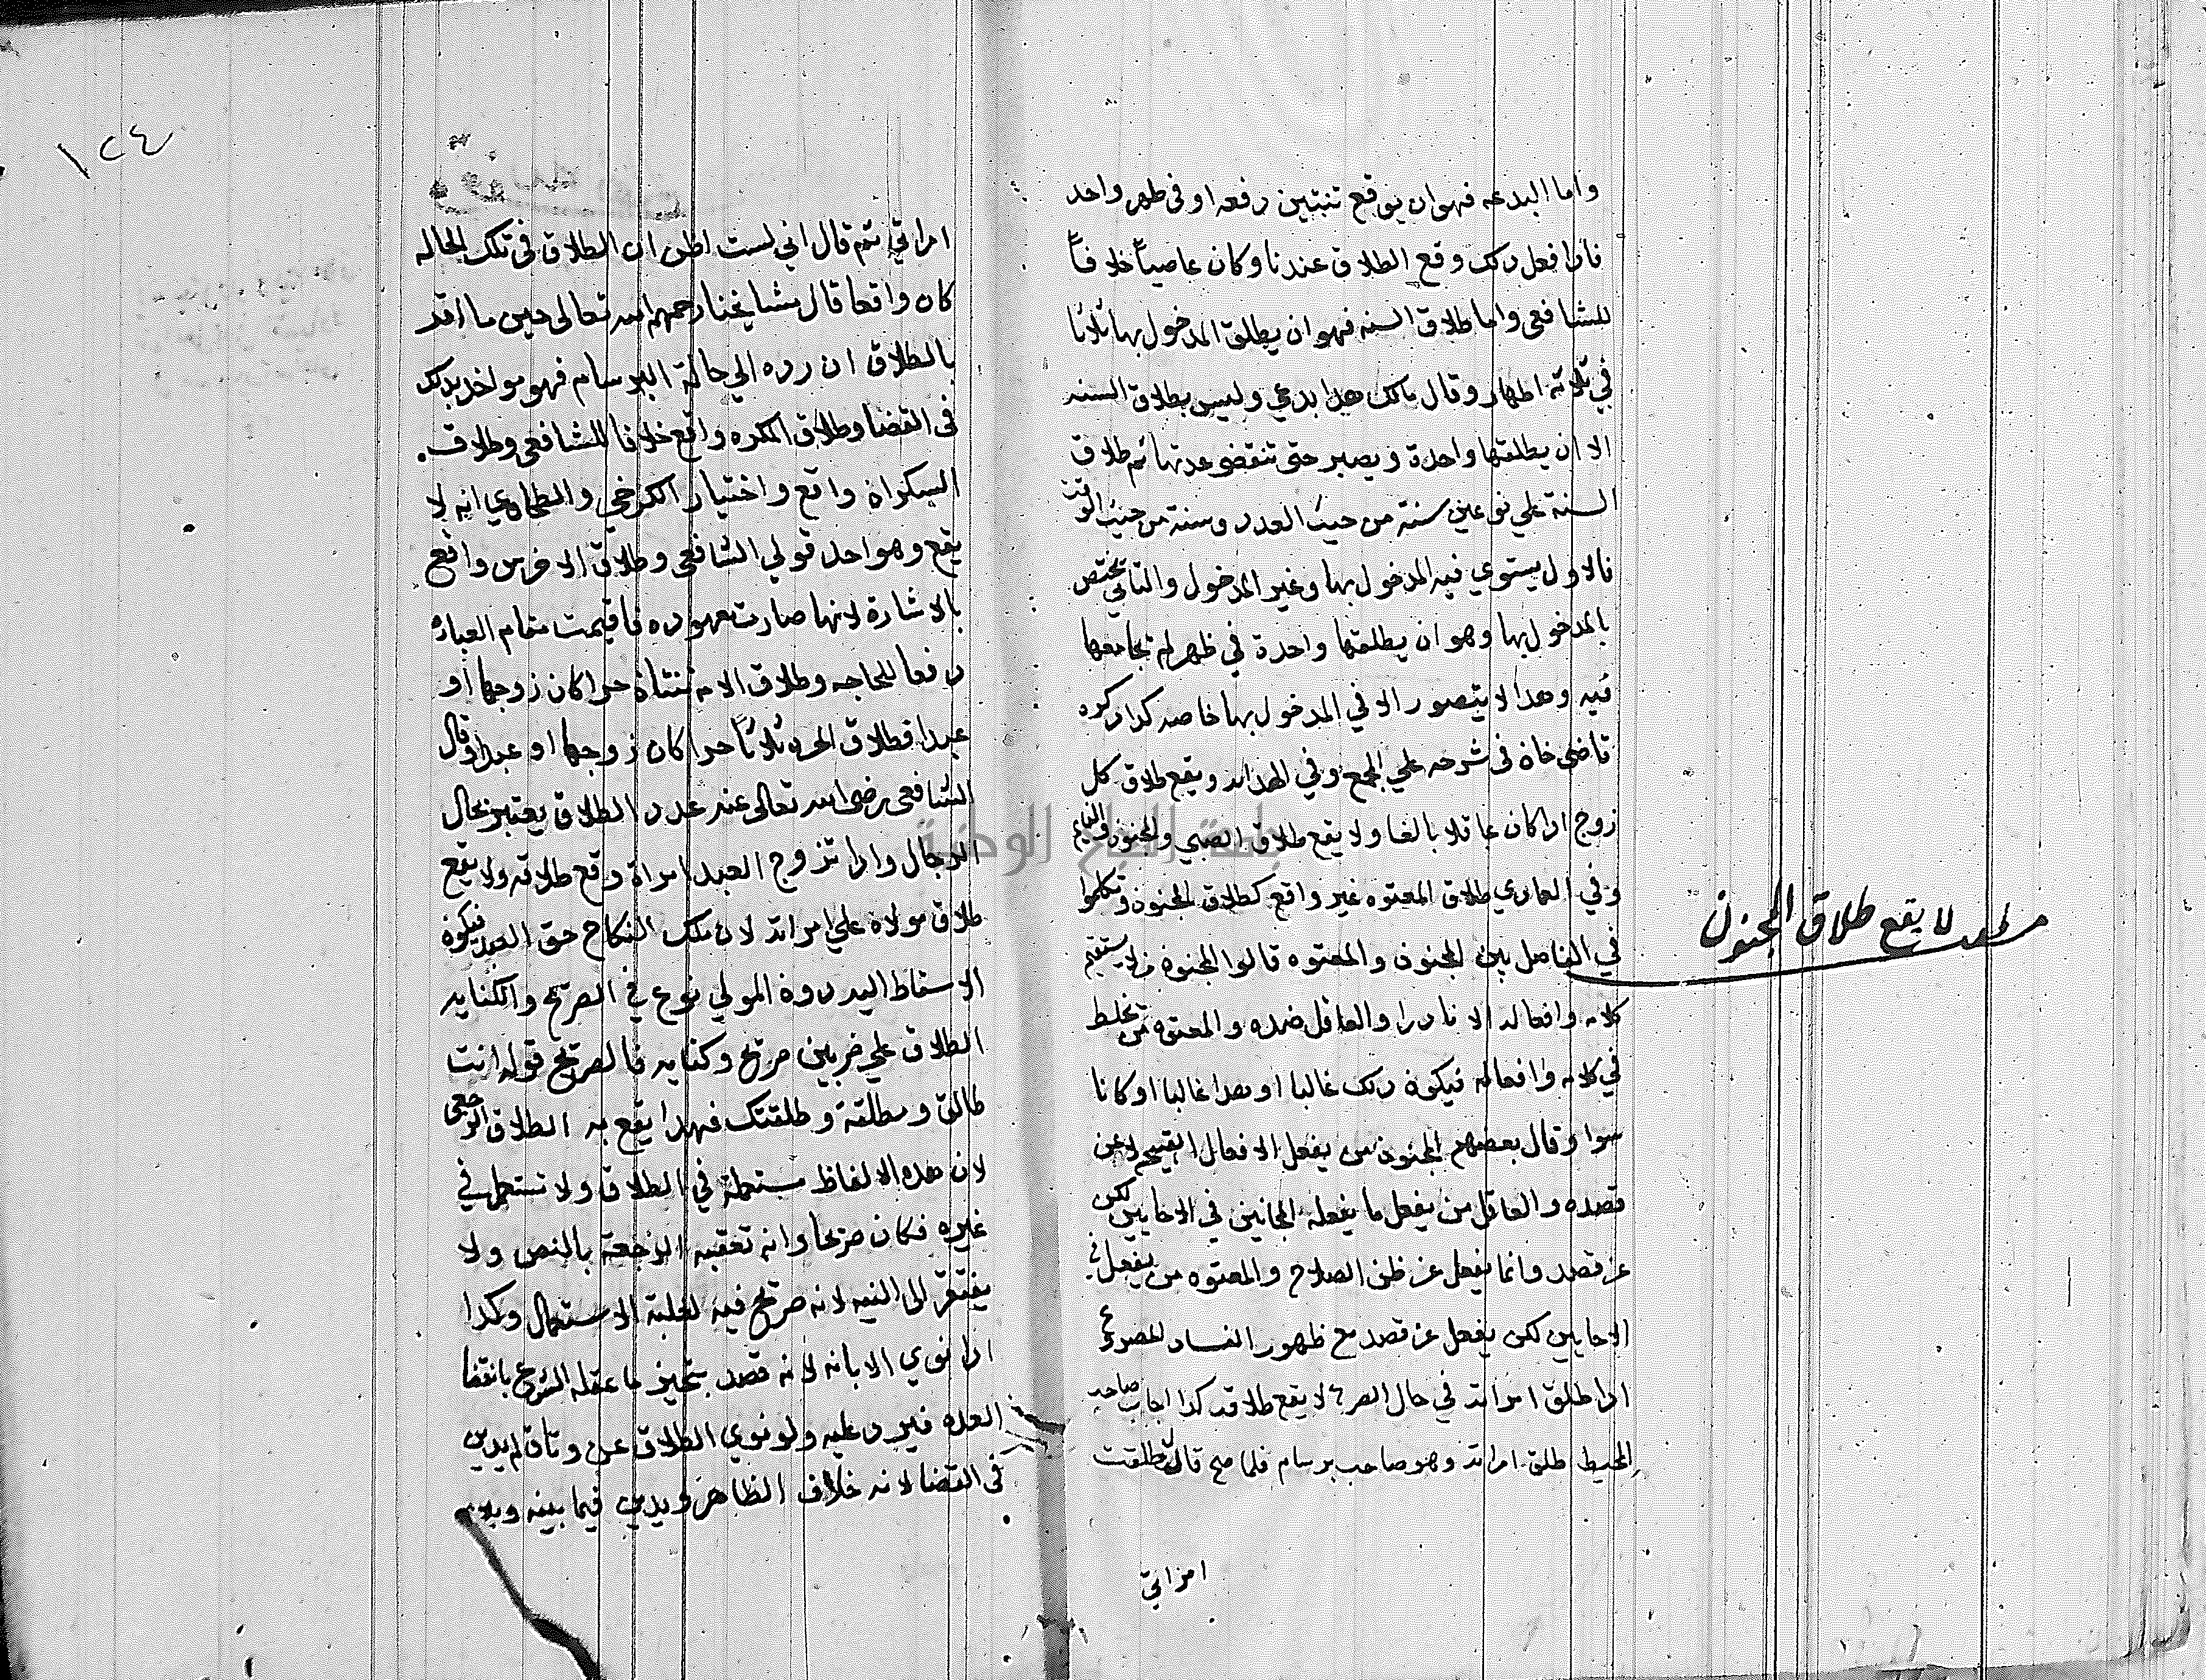 واما البدعه فهو ان يوقع ثنتين دفعه او في طهر واحد
فاذا فعل ذلك وقع الطلاق عندنا وكان عاصياً خلافاً
للشافعي واما طلاق السنه فهو ان يطلق المدخول بها ثلاثا
في ثلاثه اطهار وقال مالك هدا بدعي وليس بطلاق السنه
الا ان يطلقها واحدة ويصبر حتى تنقضي عدتها ثم طلاق
السنة علي نوعين سنة من حيث العدد وسنة من حيث الوقت
فالاول يستوي فيه المدخول بها وغير المدخول والثاني يختص
بالمدخول بها وهو ان يطلقها واحدة في طهر لم يجامعها
فيه وهدا لا يتصور الا في المدخول بها خاصه كدا دكره
قاضي خان في شرحه علي الجمع وفي الهدايه ويقع طلاق كل
زوج ادا كان عاقلا بالغا ولا يقع طلاق الصبي والمجنون والنايم
وفي العمادي طلاق المعتوه غير واقع كطلاق المجنون وتكلموا
في الفاصل بين المجنون والمعتوه قالوا المجنون من لا يستقيم
كلامه وافعاله الا نادرا والعاقل ضده والمعتوه من يخلط
في كلامه وافعاله فيكون دلك غالبا او هدا غالبا او كانا
سوا وقال بعضهم المجنون من يفعل الافعال القبيحه لا عن
قصده والعاقل من يفعل ما يفعله المجانين في الاحايين لكن
عن قصد وانما يفعل عن ظن الصلاح والمعتوه من يفعل في
الاحايين لكن يفعل عن قصد مع ظهور الفساد المصروع
ادا طلق امراته في حال الصرع لا يقع طلاقه كدا اجاب صاحب
المحيط طلق امراته وهو صاحب برسام فلما صح قال قد طلقت
امراتي
مطلب لا يقع طلاق المجنون
١٢٤
امراتي ثم قال اني لست اظن ان الطلاق في تلك الحاله
كان واقعا قال مشايخنا رحمهم الله تعالى حين ما اقر
بالطلاق ان رده الي حالة البرسام فهو مواخد بدلك
في القضا وطلاق المكره واقع خلافا للشافعي وطلاق
السكران واقع واختيار الكرخي والطحاوي انه لا
يقع وهو احد قولي الشافعي وطلاق الاخرس واقع
بالاشارة لانها صارت معهوده فاقيمت مقام العبارة
دفعا للحاجه وطلاق الامه ثنتان حرا كان زوجها او
عبدا وطلاق الحره ثلاثاً حرا كان زوجها او عبدا وقال
الشافعي رضي الله تعالى عنه عدد الطلاق يعتبر بحال
الرجال وادا تزوج العبد امراة وقع طلاقه ولا يقع
طلاق مولاه علي امراته لان ملك النكاح حق العبد فيكون
الاسقاط اليه دون المولي نوع في الصريح والكنايه
الطلاق علي ضربين صريح وكنايه فالصريح قوله انت
طالق ومطلقة وطلقتك فهدا يقع به الطلاق الرجعي
لان هده الالفاظ مستعملة في الطلاق ولا تستعمل في
غيره فكان صريحا وانه تعقبه الرجعة بالنص ولا
يفتقر الى النيه لانه صريح فيه لغلبة الاستعمال وكدا
ادا نوي الابانه لانه قصد تنجيز ما علقه الشرع بانقضا
العده فيرد عليه ولو نوي الطلاق عن وثاق لم يدين
في القضا لانه خلاف الظاهر ويدين فيما بينه وبين
جامعة النجاح الوطنية